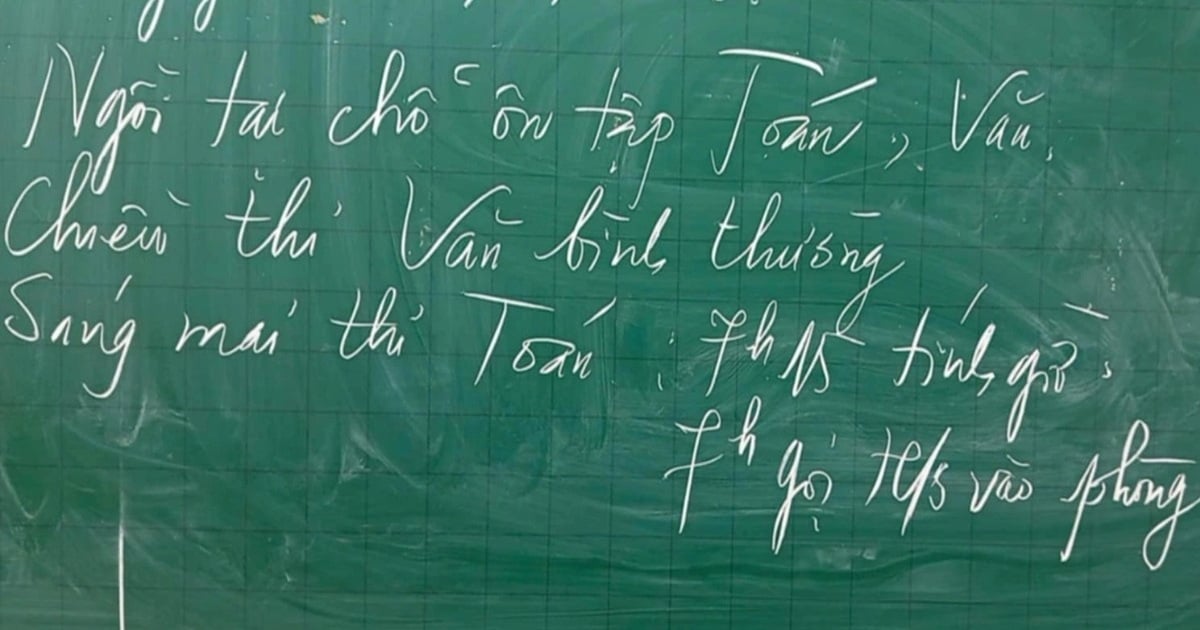 Ngồi tại chỗ ôn tập Toán, Văn.
Chiều thi Văn bình thường
Sáng mai thi Toán : 7h15 tính giờ.
7h gọi H/s vào phòng